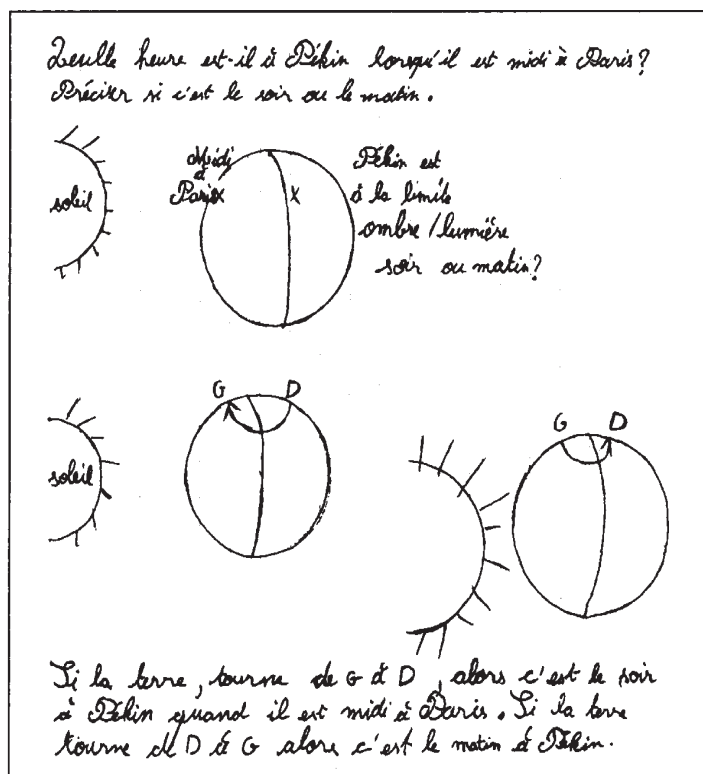 Qeulle heure est-il à Pékin lorsqu'il est midi à Paris?
Préciser si c'est le soir ou le matin.
soleil
Midi
à
Paris x
x
Pékin est
à la limite
ombre/lumière
soir ou matin?
G D
soleil
G D
Si la terre, tourne de G à D, alors c'est le soir
à Pékin quand il est midi à Paris. Si la terre
tourne de D à G alors c'est le matin à Pékin.